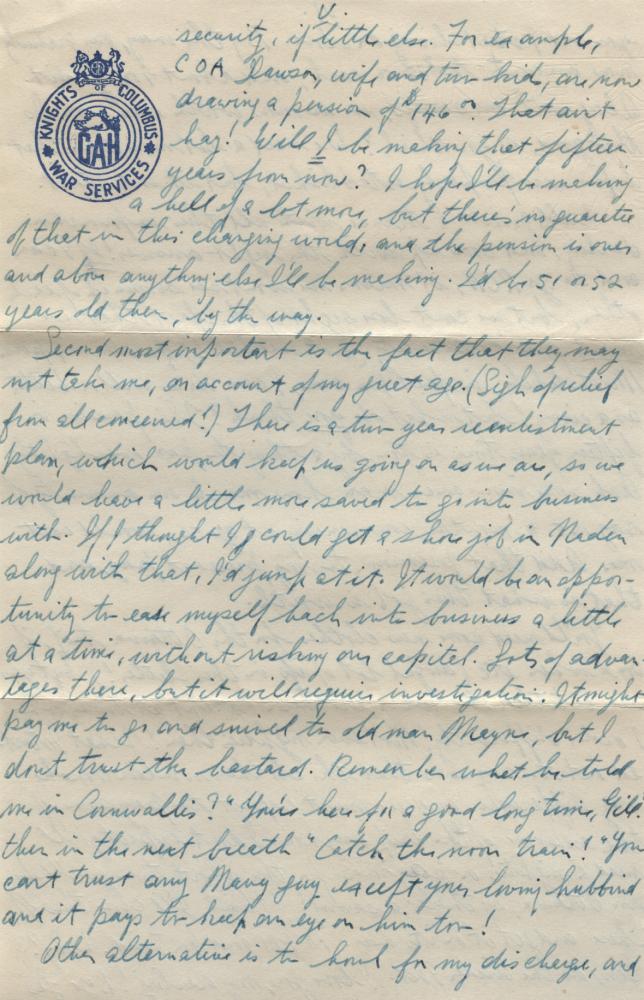 V.
KNIGHTS OF COLUMBUS
WAR SERVICES
CAH
security, if little else. For example,
COA Dawson, wife and two kids, are now
drawing a pension of $146 00. That aint
hay! Will I be making that fifteen
years from now? I hope I'll be making
a hell of a lot more, but there's no guarantee
of that in this changing world, and the pension is over
and above anything else I'll be making. I'd be 51 or 52
years old then, by the way.
Second most important is the fact that they may
not take me, on account of my great age. (Sigh of relief
from all concerned!) There is a two year reenlistment
plan, which would keep us going on as we are, so we
would have a little more saved to go into business
with. If I thought I could get a shore job in Naden
along with that, I'd jump at it. It would be an oppor-
tunity to ease myself back into business a little
at a time, without risking our capital. Lots of advan-
tages there, but it will require investigation. It might
pay me to go and snivel to old man Mayne, but I
dont trust the bastard. Remember what he told
me in Cornwallis? "You're here for a good long time, Gill".
then in the next breath "Catch the noon train!" You
cant trust any Navy guy except your loving hubbind
and it pays to keep an eye on him too!
Other alternative is to howl for my discharge, and